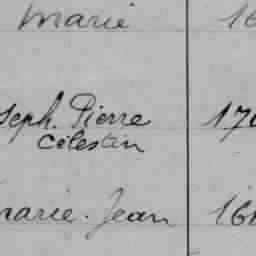 Marie 16
seph. Pierre 170
Célestin
marie. Jean 166